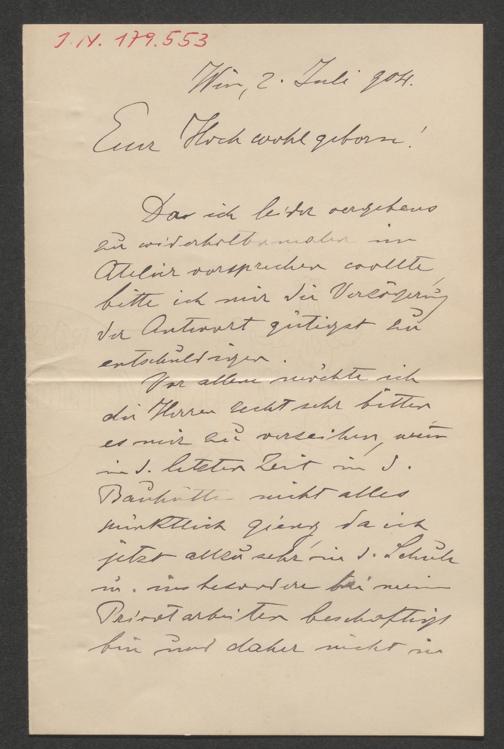 J.N. 179.553
Wien, 2. Juli 904.
Euer Hochwohlgeboren!
Da ich leider vergebens
zu wiederholtenmalen im
Atelier vorsprechen wollte,
bitte ich mir die Verzögerung
der Antwort gütigst zu
entschuldigen.
Vor allem möchte ich
die Herren recht sehr bitten
es mir zu verzeihen, wenn
in d. letzten Zeit in d.
Bauhütte nicht alles
pünktlich gieng da ich
jetzt allzu sehr in d. Schule
u. insbesondere bei meinen
Privatarbeiten beschäftigt
bin und daher nicht in